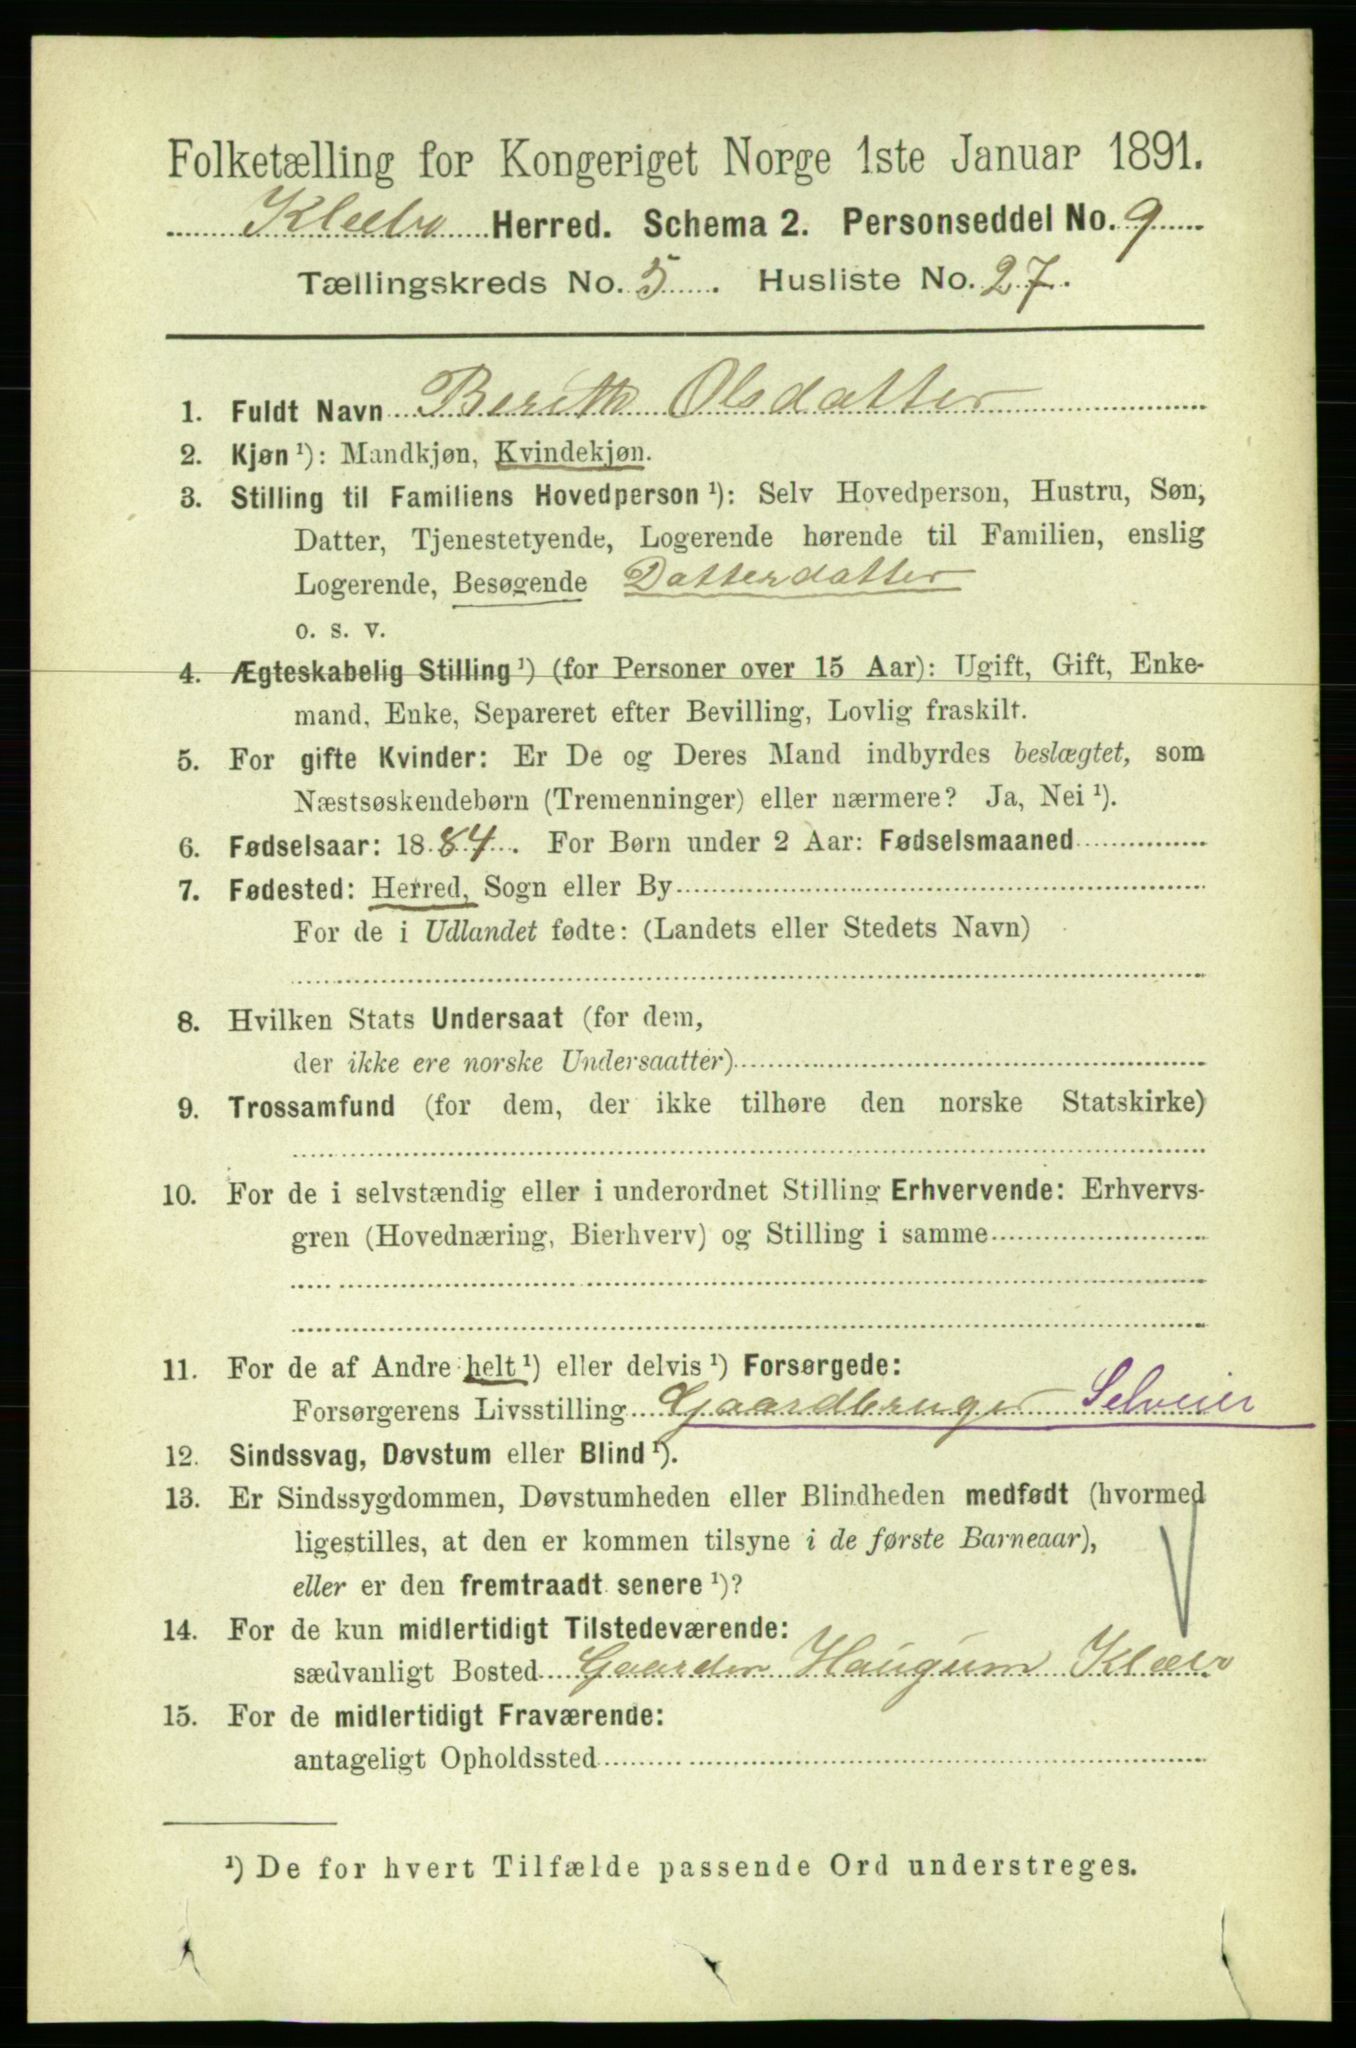 Folketælling for Kongeriget Norge 1ste Januar 1891.
Klæbo Herred. Schema 2. Personseddel No. 9
Tællingskreds No. 5. Husliste No. 27.
1. Fuldt Navn Berith Olsdatter
2. Kjøn ¹): Mandkjøn, Kvindekjøn.
3. Stilling til Familiens Hovedperson ¹): Selv Hovedperson, Hustru, Søn,
Datter, Tjenestetyende, Logerende hørende til Familien, enslig
Logerende, Besøgende Datterdatter
o. s. v.
4. Ægteskabelig Stilling ¹) (for Personer over 15 Aar): Ugift, Gift, Enke-
mand, Enke, Separeret efter Bevilling, Lovlig fraskilt.
5. For gifte Kvinder: Er De og Deres Mand indbyrdes beslægtet, som
Næstsøskendebørn (Tremenninger) eller nærmere? Ja, Nei ¹).
6. Fødselsaar: 1884. For Børn under 2 Aar: Fødselsmaaned
7. Fødested: Herred, Sogn eller By
For de i Udlandet fødte: (Landets eller Stedets Navn)
8. Hvilken Stats Undersaat (for dem,
der ikke ere norske Undersaatter)
9. Trossamfund (for dem, der ikke tilhøre den norske Statskirke)
10. For de i selvstændig eller i underordnet Stilling Erhvervende: Erhvervs-
gren (Hovednæring, Bierhverv) og Stilling i samme
11. For de af Andre helt ¹) eller delvis ¹) Forsørgede:
Forsørgerens Livsstilling Gaardbruger Selveier
12. Sindssvag, Døvstum eller Blind ¹).
13. Er Sindssygdommen, Døvstumheden eller Blindheden medfødt (hvormed
ligestilles, at den er kommen tilsyne i de første Barneaar),
eller er den fremtraadt senere ¹)?
14. For de kun midlertidigt Tilstedeværende:
sædvanligt Bosted Gaarden Haugum Klæbo
15. For de midlertidigt Fraværende:
antageligt Opholdssted
¹) De for hvert Tilfælde passende Ord understreges.